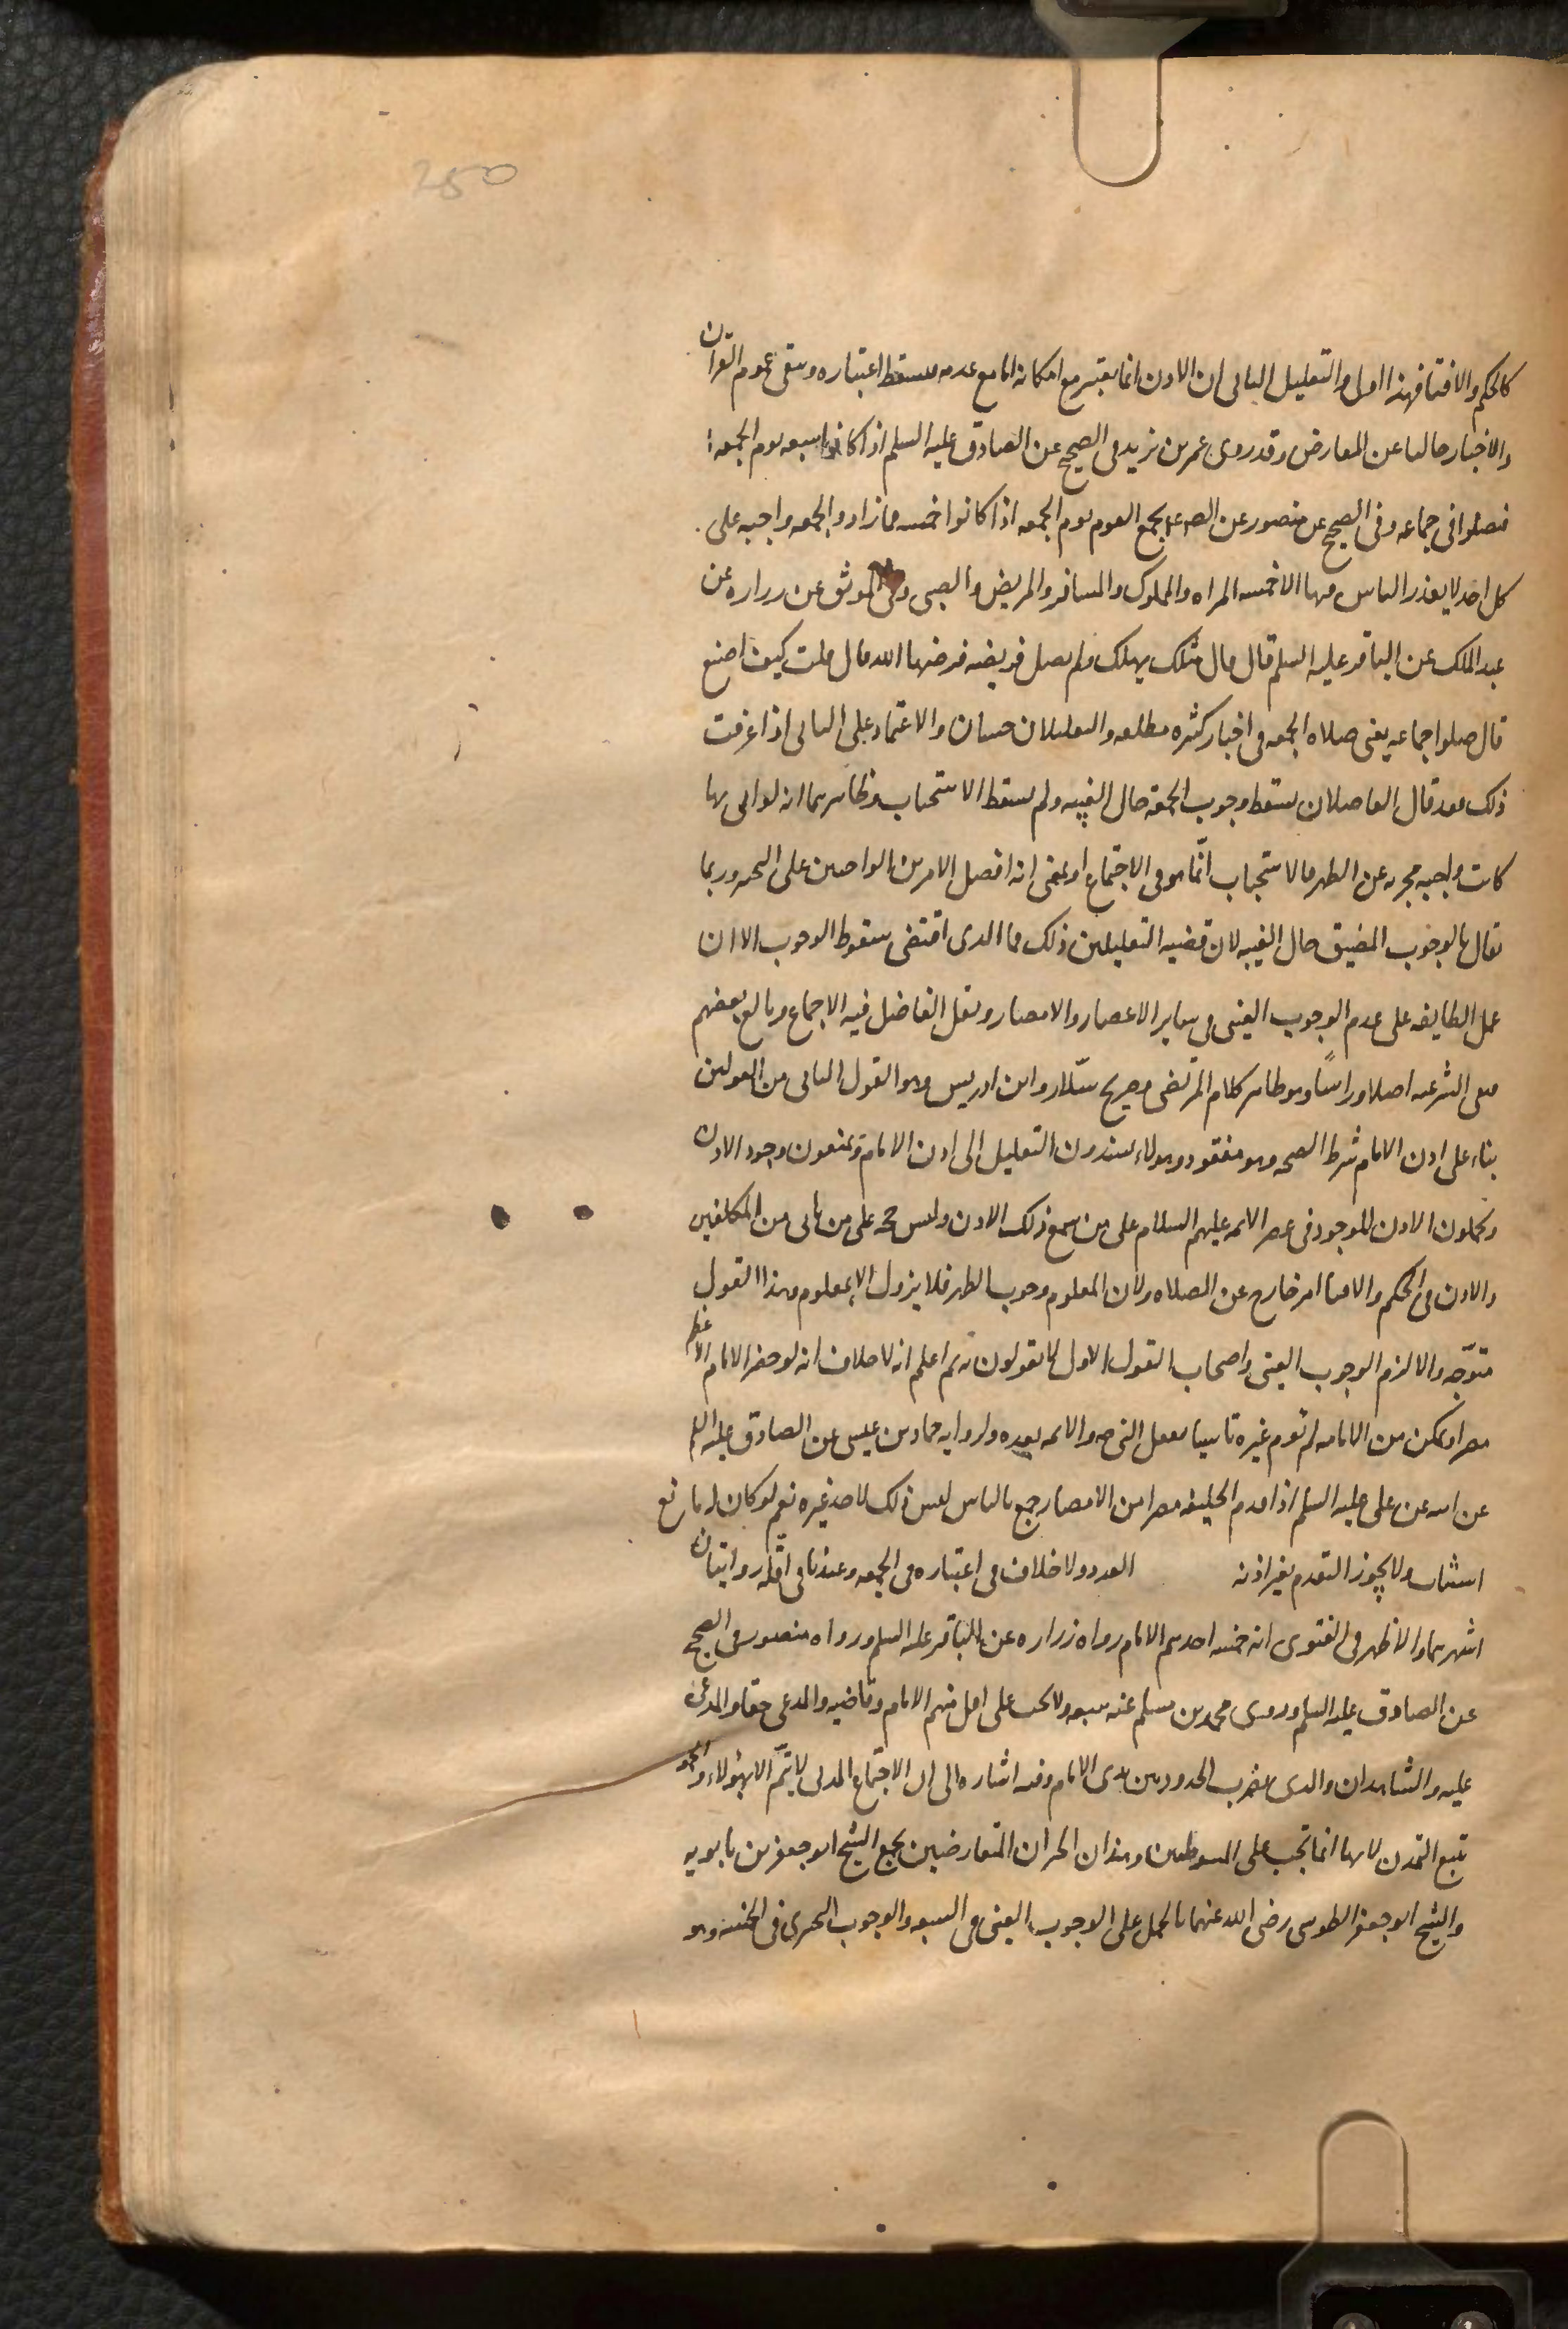 250
كالحكم والافتا فهذا اولى والتعليل الثانى ان الاذن انما يعتبر مع امكانه اما مع عدمه فيسقط اعتباره ويبقى عموم القران
والاخبار خاليا عن المعارض وقد روى عمر بن يزيد فى الصحيح عن الصادق عليه السلم اذا كانوا سبعه يوم الجمعه
فصلوا فى جماعه وفى الصحيح عن منصور عن الص ع يجمع القوم يوم الجمعه اذا كانوا خمسه فما زاد والجمعه واجبه على
كل احد لا يعذر الناس فيها الا خمسه المراه والمملوك والمسافر والمريض والصبى وفى الموثق عن زراره عن
عبد الملك عن الباقر عليه السلم قال قال مثلك يهلك ولم يصل فريضه فرضها الله قال قلت كيف اصنع
قال صلوا جماعه يعنى صلاه الجمعه فى اخبار كثيره مطلقه والتعليلان حسنان والاعتماد على الثانى اذا عرفت
ذلك فقد قال الفاضلان يسقط وجوب الجمعة حال الغيبه ولم يسقط الاستحباب وظاهرهما انه لو اتى بها
كانت واجبه مجزيه عن الظهر فالاستحباب انّما هو فى الاجتماع او بمعنى انه افضل الامرين الواجبين على التخيير وربما
يقال بالوجوب المضيق حال الغيبه لان قضيه التعليلين ذلك فما الذى اقتضى سقوط الوجوب الا ان
عمل الطايفه على عدم الوجوب العينى فى ساير الاعصار والامصار ونقل الفاضل فيه الاجماع وبالغ بعضهم
فنفى الشرعيه اصلا وراسًا وهو ظاهر كلام المرتضى وصريح سلّار وابن ادريس وهو القول الثانى من القولين
بناء على ان اذن الامام شرط الصحه وهو مفقود وهولاء يسندون التعليل الى اذن الامام ويمنعون وجود الاذن
ويحملون الاذن الموجود فى عصر الائمه عليهم السلام على من سمع ذلك الاذن وليس حجه على من ياتى من المكلفين
والاذن فى الحكم والافتا امر خارج عن الصلاه ولان المعلوم وجوب الظهر فلا يزول الا بمعلوم وهذا القول
متوجّه والا لزم الوجوب العينى واصحاب القول الاول لا يقولون به ثم اعلم انه لا خلاف انه لو حضر الامام الاعظم
مصرا وتمكن من الامامه لم يوم غيره تاسيا بفعل النبى ص والائمه بعده ولروايه حماد بن عيسى عن الصادق عليه السلم
عن ابيه عن على عليه السلم اذا قدم الخليفه مصرا من الامصار جمع بالناس ليس ذلك لاحد غيره نعم لو كان له مانع
استناب ولا يجوز التقدم بغير اذنه العدد ولا خلاف فى اعتباره فى الجمعه وعندنا فى اقله روايتان
اشهرهما والاظهر فى الفتوى انه خمسه احدهم الامام رواه زراره عن الباقر عليه السلم ورواه منصور فى الصحيح
عن الصادق عليه السلم وروى محمد بن مسلم عنه سبعه ولا تجب على اقل منهم الامام وقاضيه والمدعى حقا والمدعى
عليه والشاهدان والذى يضرب الحدود بين يدى الامام وفيه اشاره الى ان الاجتماع المدنى لا يتمّ الا بهؤلاء والجمعه
تتبع التمدن لانها انما تجب على المستوطنين وهذان الخبران المتعارضين يجمع الشيخ ابو جعفر بن بابويه
والشيخ ابو جعفر الطوسى رضى الله عنهما بالحمل على الوجوب العينى فى السبعه والوجوب التخييرى فى الخمسه وهو